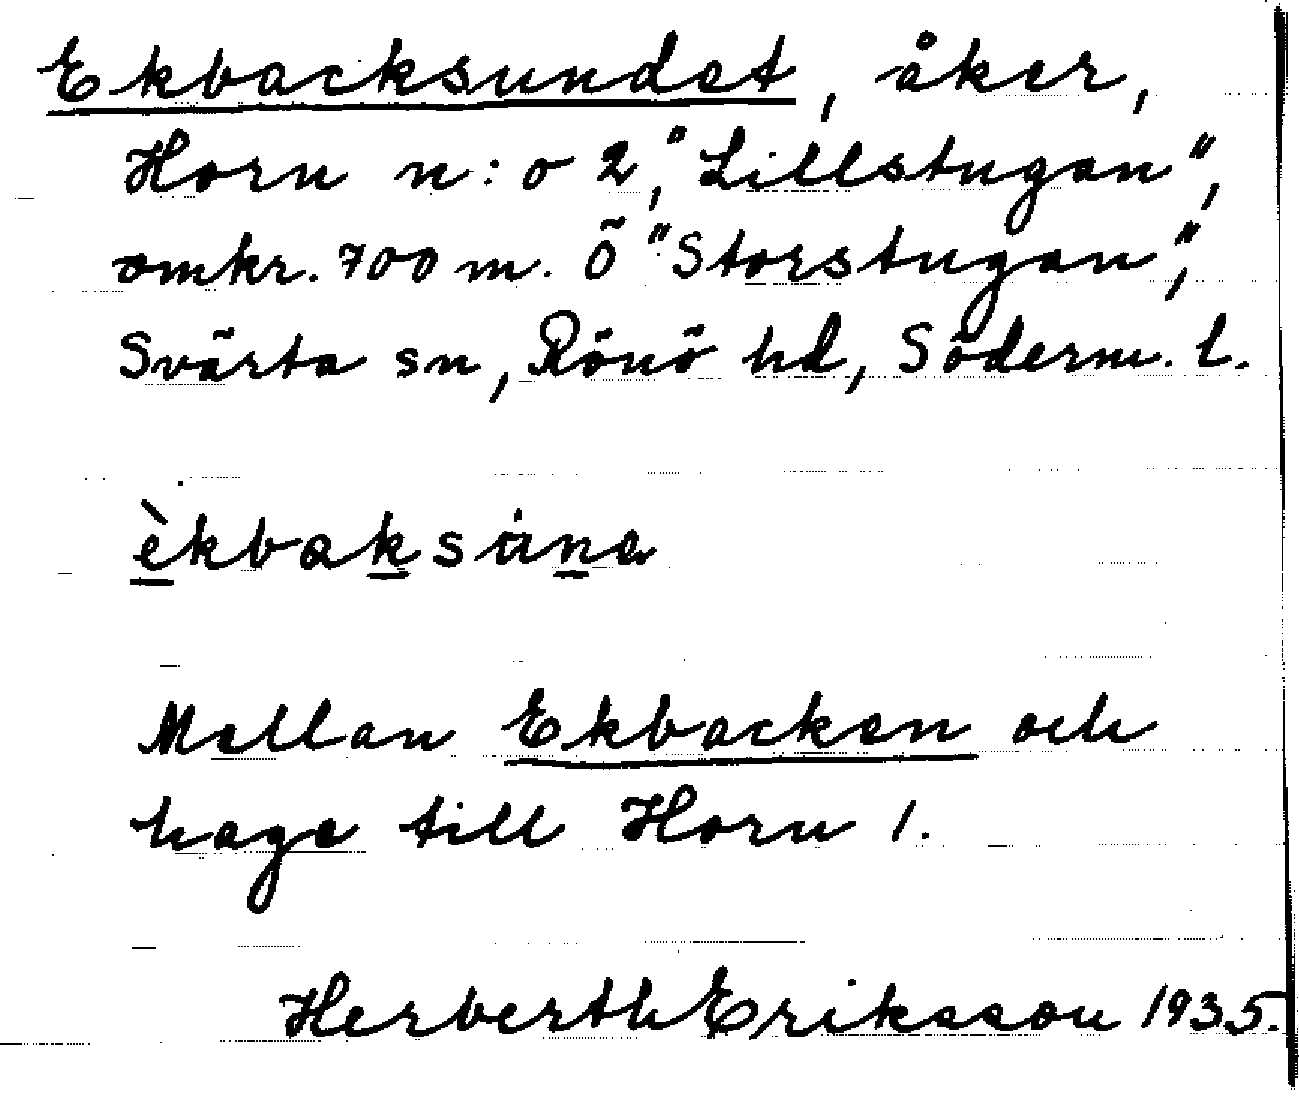 Ekbacksundet, åker,
Horn n:o 2, "Lillstugan",
omkr. 700 m. Ö "Storstugan",
Svärta sn, Rönö hd, Söderm. l.
èkbaksúna
Mellan Ekbacken och
hage till Horn 1.
Herberth Eriksson 1935.